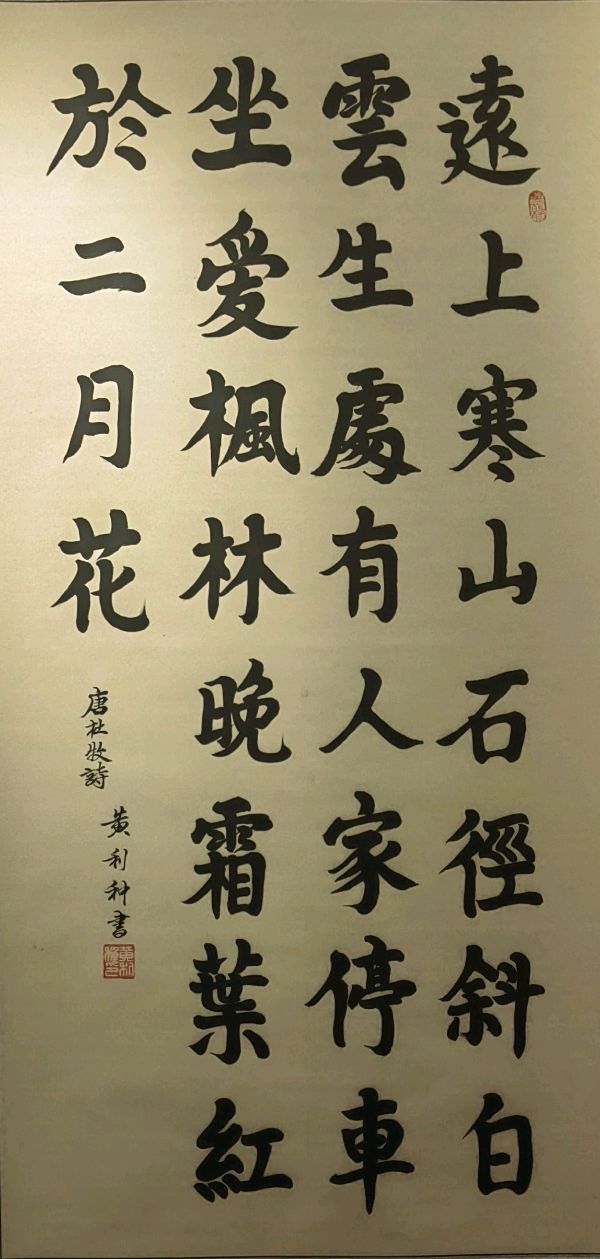 遠上寒山石徑斜白
雲生處有人家停車
坐爱楓林晚霜葉紅
於二月花
唐杜牧詩
黃利科書